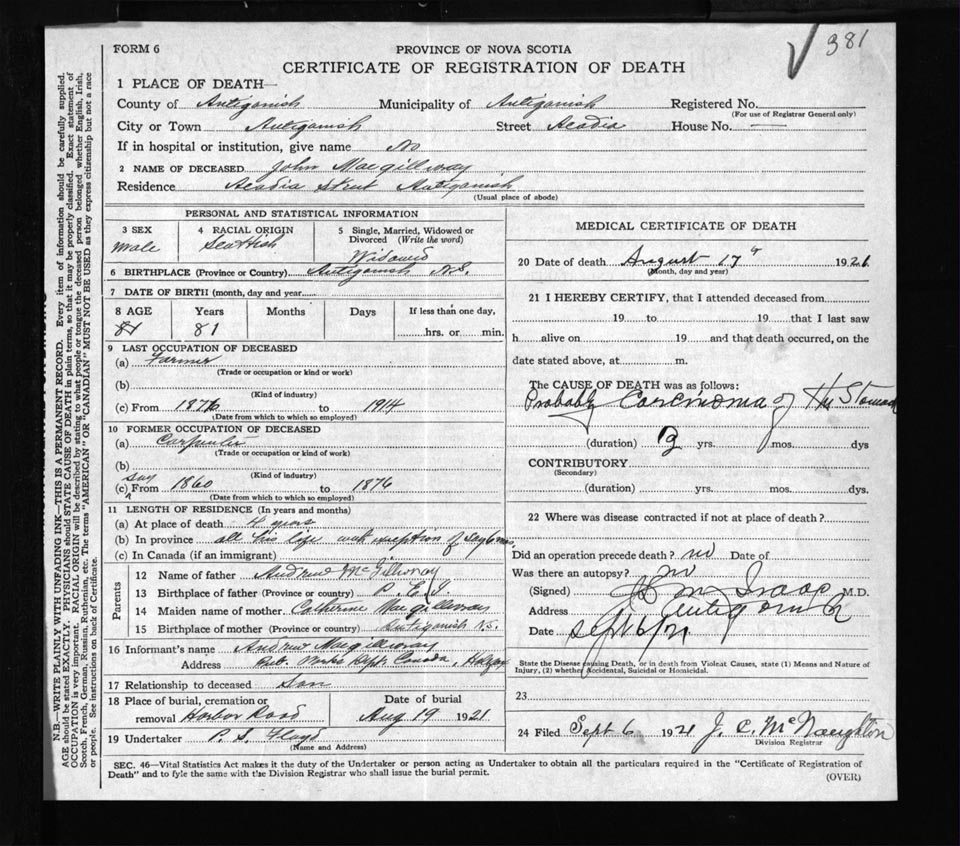 381
FORM 6
PROVINCE OF NOVA SCOTIA
CERTIFICATE OF REGISTRATION OF DEATH
1 PLACE OF DEATH—
County of Antigonish Municipality of Antigonish Registered No.
(For use of Registrar General only)
City or Town Antigonish Street Acadia House No. —
If in hospital or institution, give name No
2 NAME OF DECEASED John Macgillvray
Residence Acadia Street Antigonish
(Usual place of abode)
PERSONAL AND STATISTICAL INFORMATION
3 SEX 4 RACIAL ORIGIN 5 Single, Married, Widowed or Divorced (Write the word)
Male Scottish Widowed
6 BIRTHPLACE (Province or Country) Antigonish N.S.
7 DATE OF BIRTH (month, day and year
8 AGE Years Months Days If less than one day,
81 81 hrs. or min.
9 LAST OCCUPATION OF DECEASED
(a) Farmer
(Trade or occupation or kind or work)
(b)
(Kind of industry)
(c) From 1876 to 1914
(Date from which to which so employed)
10 FORMER OCCUPATION OF DECEASED
(a) Carpenter
(Trade or occupation or kind or work)
(b)
(Kind of industry)
say
(c) From 1860 to 1876
(Date from which to which so employed)
11 LENGTH OF RESIDENCE (In years and months)
(a) At place of death 4 years
(b) In province all his life with exception of say 6 mos.
(c) In Canada (if an immigrant)
Parents
12 Name of father Andrew McGillivray
13 Birthplace of father (Province or country) P.E.I.
14 Maiden name of mother Catherine Macgillivray
15 Birthplace of mother (Province or country) Antigonish N.S.
16 Informant's name Andrew Macgillivray
Address Pub. Works Dept. Canada, Halifax
17 Relationship to deceased Son
18 Place of burial, cremation or removal Harbor Road
Date of burial Aug 19 1921
19 Undertaker P. S. Floyd
(Name and Address)
MEDICAL CERTIFICATE OF DEATH
20 Date of death August 17 1921
(Month, day and year)
21 I HEREBY CERTIFY, that I attended deceased from
19 to 19 that I last saw
h alive on 19 and that death occurred, on the
date stated above, at m.
The CAUSE OF DEATH was as follows:
Probably Carcinoma of the Stomach
(duration) yrs. mos. dys
CONTRIBUTORY
(Secondary)
(duration) yrs. mos. dys.
22 Where was disease contracted if not at place of death?
Did an operation precede death? no Date of
Was there an autopsy? no
(Signed) M.D.
Address Antigonish
Date Sept 6/21
State the Disease causing Death, or in death from Violent Causes, state (1) Means and Nature of
Injury, (2) whether Accidental, Suicidal or Homicidal.
23
24 Filed Sept. 6 1921 J. C. McNaughton
Division Registrar
SEC. 46—Vital Statistics Act makes it the duty of the Undertaker or person acting as Undertaker to obtain all the particulars required in the "Certificate of Registration of
Death" and to fyle the same with the Division Registrar who shall issue the burial permit.
(OVER)
N.B.—WRITE PLAINLY WITH UNFADING INK—THIS IS A PERMANENT RECORD. Every item of information should be carefully supplied.
AGE should be stated EXACTLY. PHYSICIANS should STATE CAUSE OF DEATH in plain terms, so that it may be properly classified. Exact statement of
OCCUPATION is very important. RACIAL ORIGIN will be described by stating to what people or tongue the deceased person belonged whether English, Irish,
Scotch, French, German, Russian, Ruthenian, etc. The terms "AMERICAN" OR "CANADIAN" MUST NOT BE USED as they express citizenship but not a race
or people. See instructions on back of Certificate.